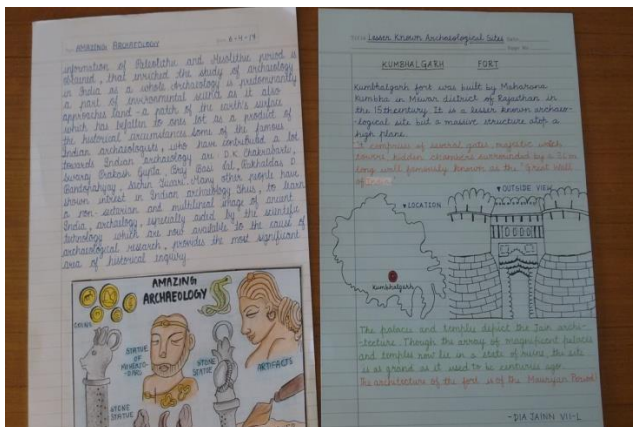 AMAZING ARCHAEOLOGY
6-4-19
information of Paleolithic and Mesolithic period is
obtained, that enriched the study of archaeology
in India as a whole. Archaeology is predominantly
a part of environmental science as it also
approaches land - a patch of the earth's surface
which has befallen to one's lot as a product of
the historical circumstances. Some of the famous
Indian archaeologists, who have contributed a lot
towards Indian archaeology are: D.K. Chakrabarti,
Swaraj Prakash Gupta, Braj Basi Lal, Rakhaldas D.
Bandopahyay, Many other people have
shown interest in Indian archaeology thus, to learn
a non-sectarian and multilineal image of ancient
India, archaeology, especially aided by the scientific
technology which are now available to the cause of
archaeological research, provides the most significant
area of historical enquiry.
AMAZING
ARCHAEOLOGY
COINS
STATUE
OF
MOHENJO-
DARO
STONE
STATUE
ARTIFACTS
STONE
STATUE
Lesser Known Archaeological Sites
Date
Page No.
KUMBHALGARH FORT
Kumbhalgarh fort was built by Maharana
Kumbha in Mewar district of Rajasthan in
the 15th century. It is a lesser known archaeo-
logical site but a massive structure atop a
high plane.
It comprises of several gates, majestic watch
towers, hidden chambers surrounded by a
long wall famously known as the "Great Wall
of
LOCATION
OUTSIDE VIEW
Kumbhalgarh
The palaces and temples depict the Jain archi-
-tecture. Though the array of magnificent palaces
and temples now lie in a state of ruins, the site
is as grand as it used to be centuries ago.
The architecture of the fort is of the Mauryan Period.
-DIA JAINN VII-L